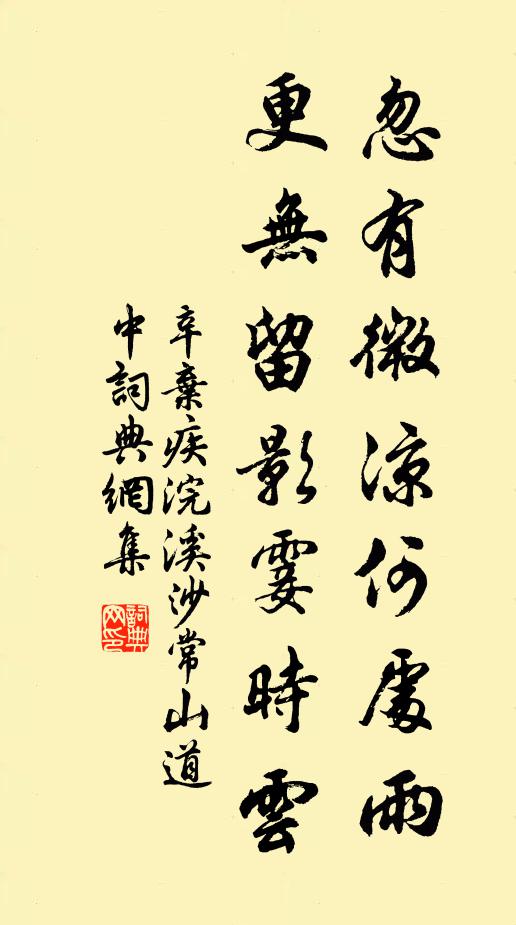 忽有微涼何處雨
更無留影霎時雲
辛棄疾浣溪沙常山道
中詞典網集
詞典網印